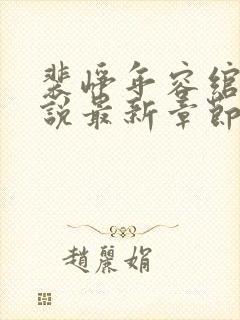 裴恃年容绾
說最新章節
趙麗娟